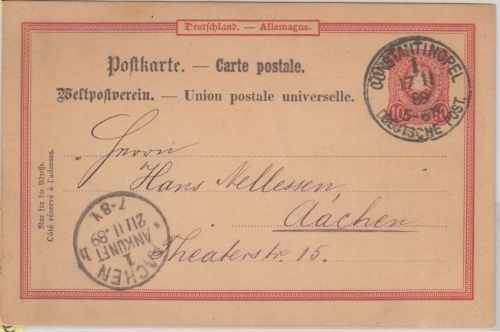 Deutschland. — Allemagne.
Postkarte. — Carte postale.
Weltpostverein. — Union postale universelle.
CONSTANTINOPEL
1
17 11
89
5-6 N
DEUTSCHE POST.
10
Herrn
Hans Nellessen,
Aachen
Theaterstr. 15.
Nur für die Adresse.
Côté réservé à l'adresse.
AACHEN
1
ANKUNFT
21 11 89
7-8 V.